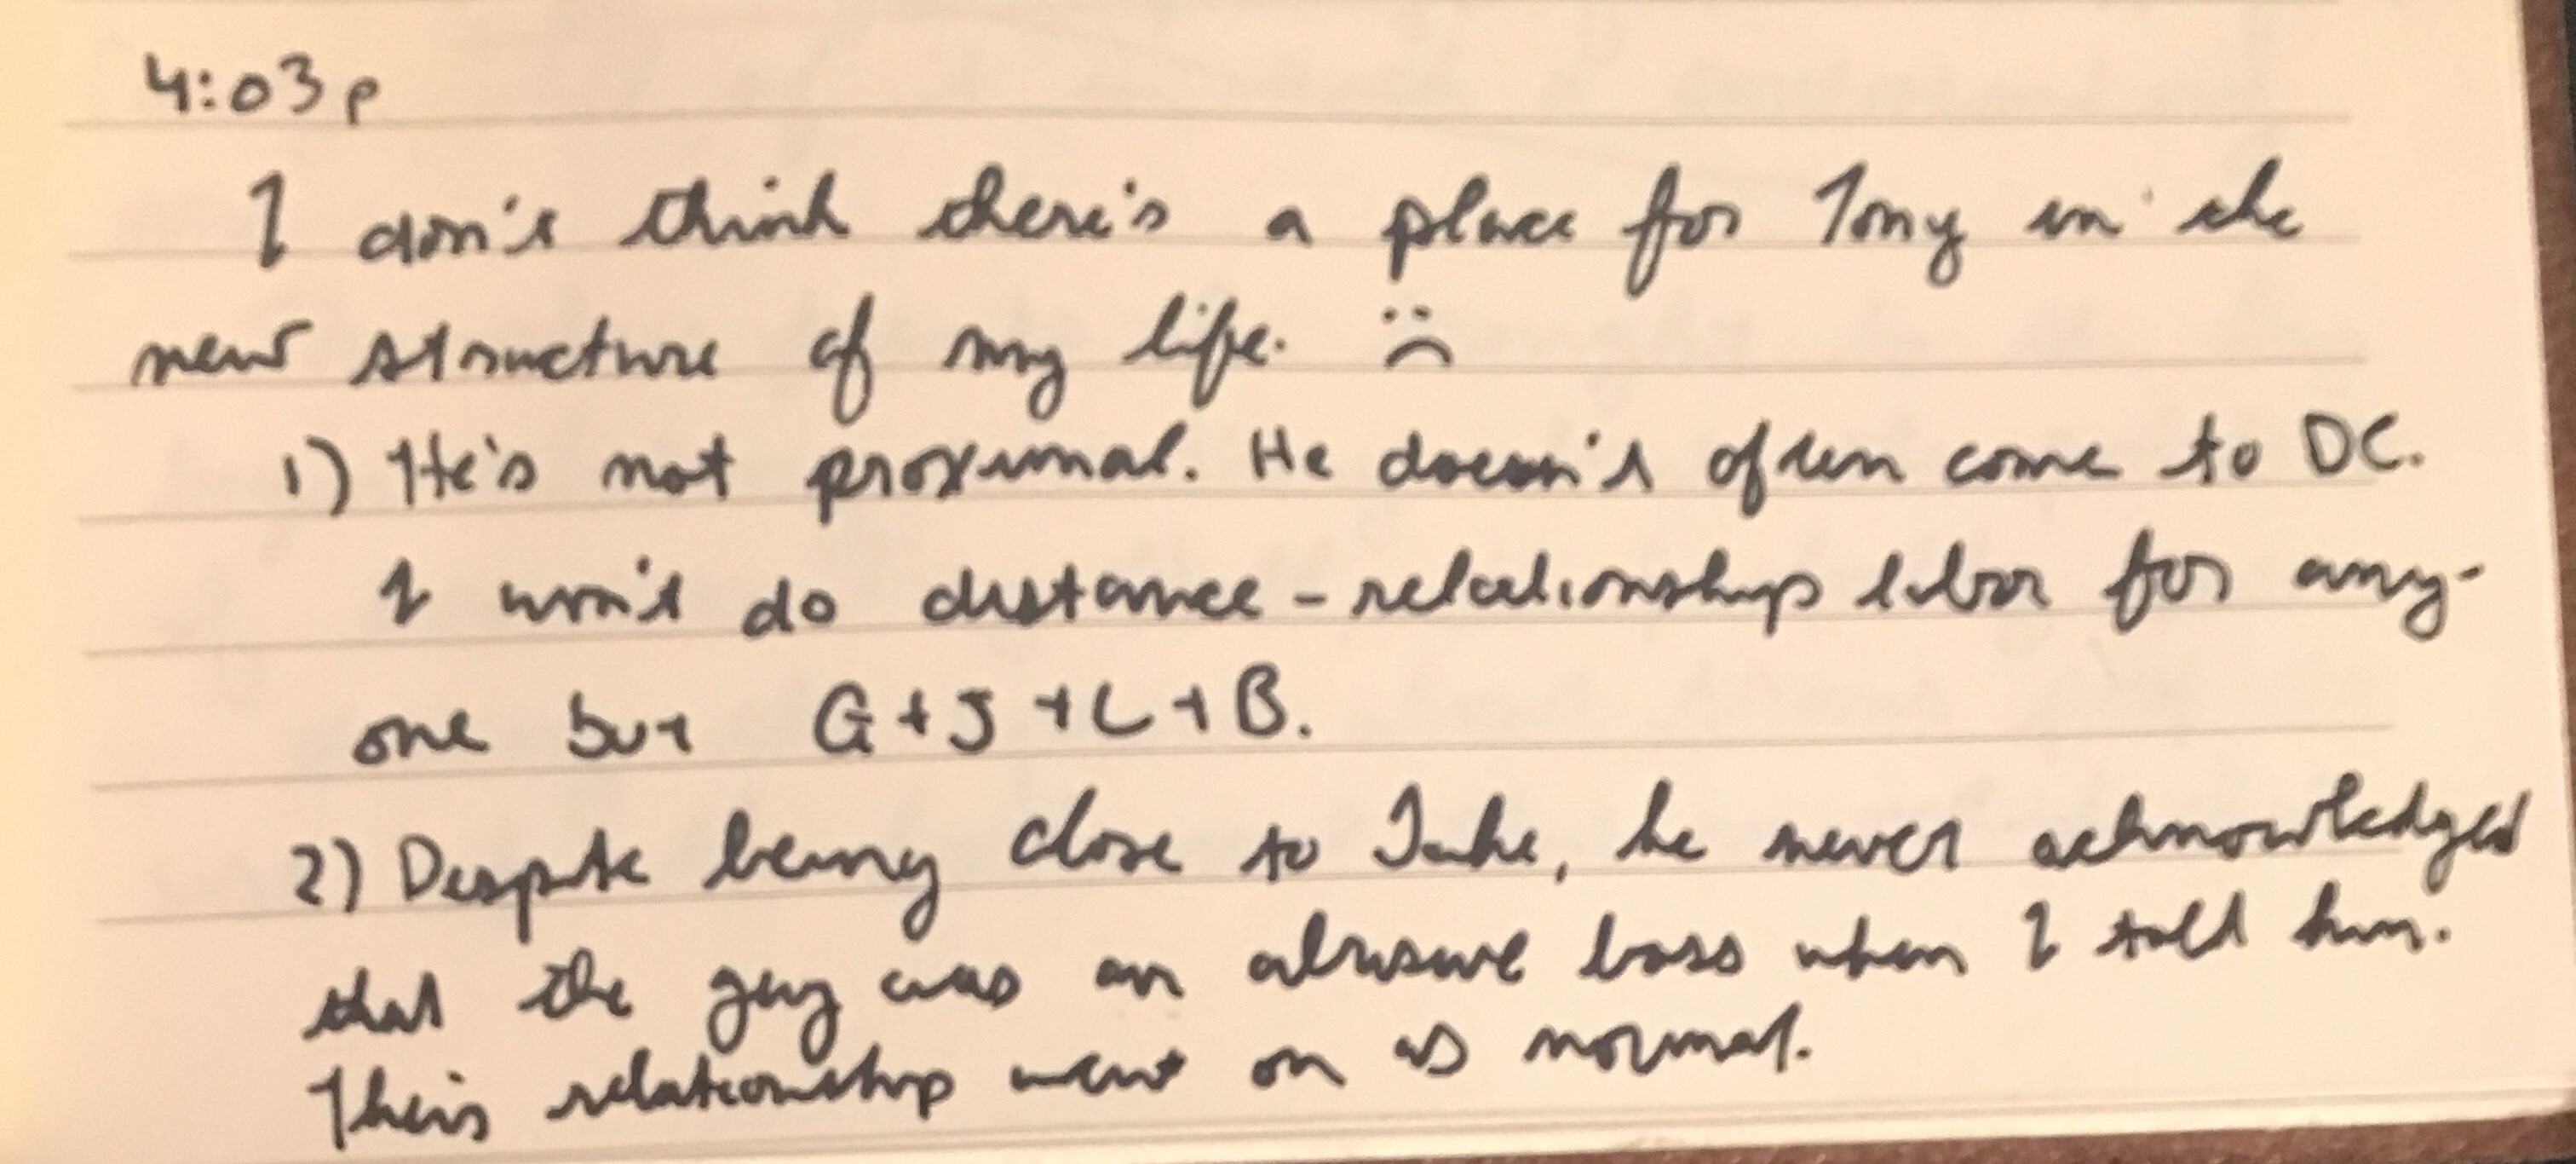 4:03p
I don't think there's a place for Tony in the
new structure of my life. :(
1) He's not proximal. He doesn't often come to DC.
I won't do distance-relationship labor for any-
one but G+J+L+B.
2) Despite being close to Jake, he never acknowledged
that the guy was an abusive boss when I told him.
Their relationship went on as normal.